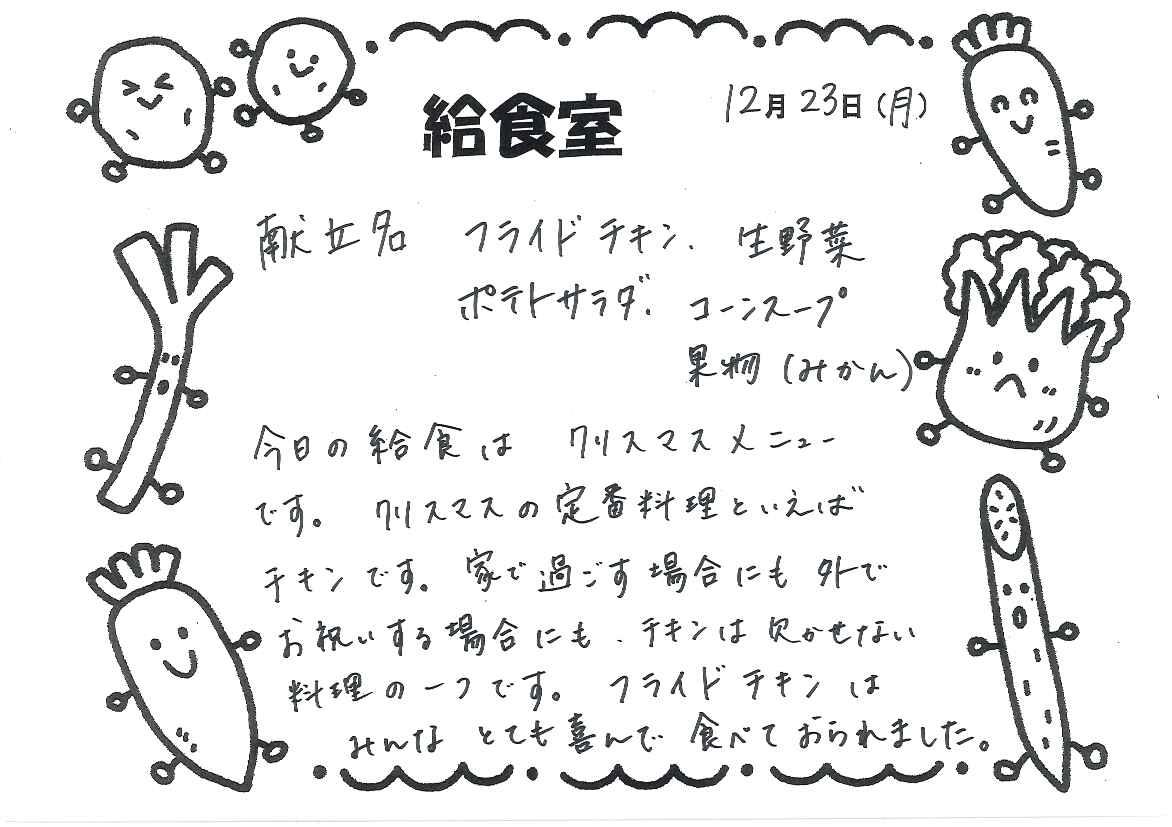 給食室
12月23日(月)
献立名 フライドチキン、生野菜
ポテトサラダ、コーンスープ
果物(みかん)
今日の給食は クリスマスメニュー
です。クリスマスの定番料理といえば
チキンです。家で過ごす場合にも外で
お祝いする場合にも、チキンは欠かせない
料理の一つです。フライドチキンは
みんな とても喜んで 食べておられました。